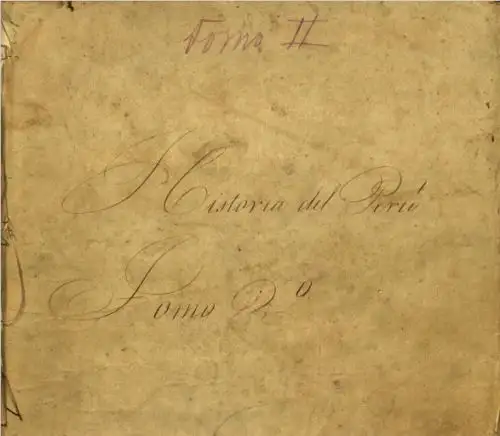 Tomo II
Historia del Perú
Tomo 2.º